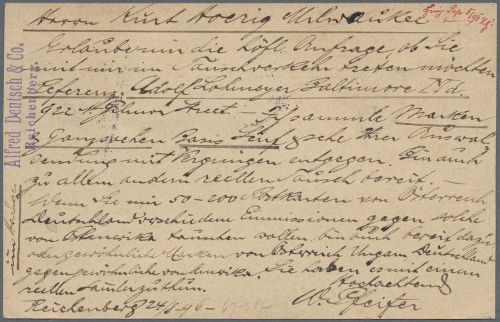 Herrn Kurt Hoerig Milwaukee
Erlaube mir die höfl. Anfrage, ob Sie
mit mir in Tauschverkehr treten möchten
Referenz, Adolf Lohmeyer Baltimore Md.
922 N. Gilmor Street. Ich sammle Marken
& Ganzsachen Basis Senf & sehe Ihrer Auswahl
sendung mit Vergnügen entgegen. Bin auch
zu allem andern reellen Tausch bereit —
Wenn Sie mir 50-200 Postkarten von Österreich
Deutschland verschiedene Emmissionen gegen solche
von tauschen wollen bin auch bereit dazu
oder gewöhnliche Marken von Österreich Ungarn Deutschland
gegen gewöhnliche von Amerika. Sie haben es mit einem
reellen Sammler zu thun.
Hochachtend
Reichenberg 24/8 96 W. Pfeifer
Alfred Deutsch & Co.
Reichenberg.